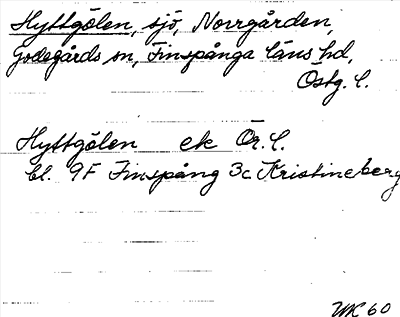 Hyttgölen, sjö, Norrgården,
Godegårds sn, Finspånga läns hd,
Östg. l.
Hyttgölen ek Or. l.
bl. 9F Finspång 3c Kristineberg
MC 60